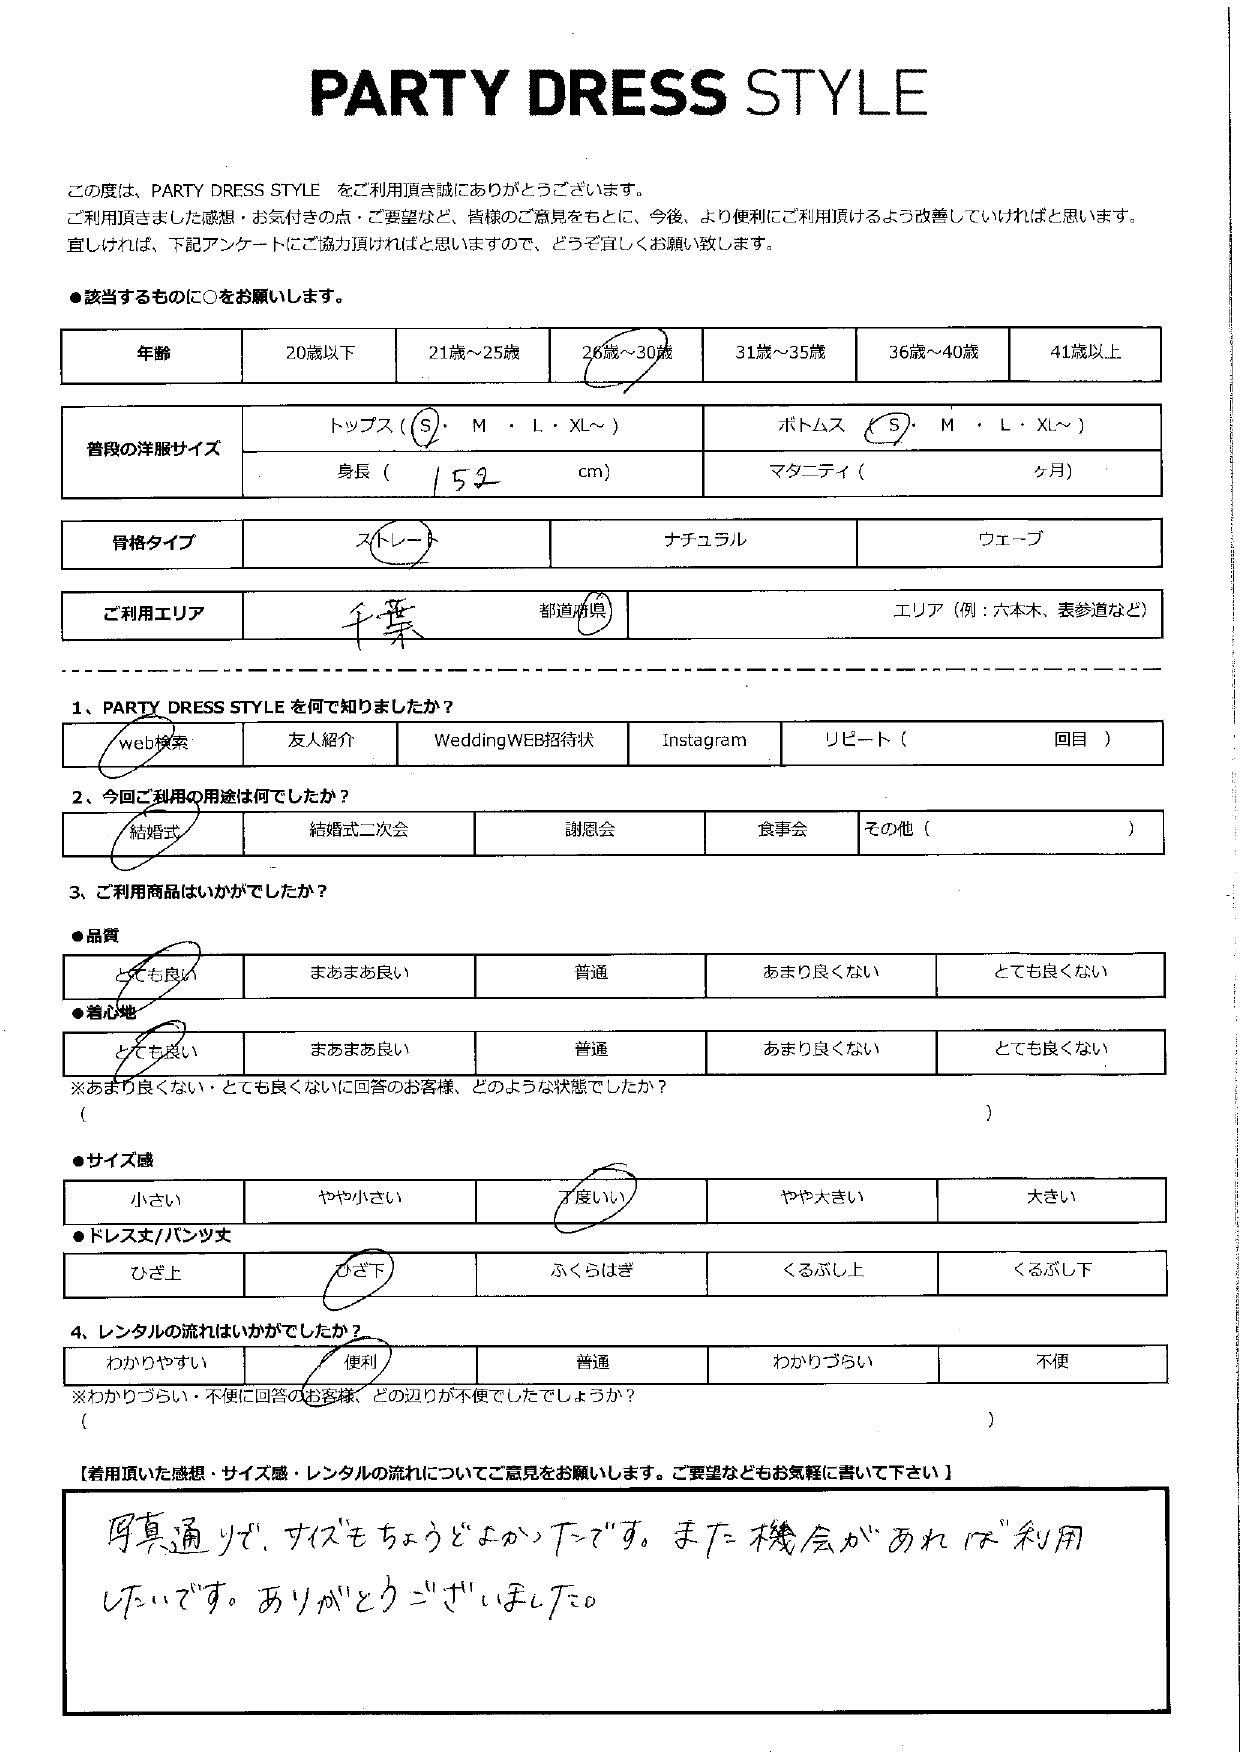 PARTY DRESS STYLE
この度は、PARTY DRESS STYLE　をご利用頂き誠にありがとうございます。
ご利用頂きました感想・お気付きの点・ご要望など、皆様のご意見をもとに、今後、より便利にご利用頂けるよう改善していければと思います。
宜しければ、下記アンケートにご協力頂ければと思いますので、どうぞ宜しくお願い致します。
●該当するものに○をお願いします。
年齢 20歳以下 21歳～25歳 26歳～30歳 31歳～35歳 36歳～40歳 41歳以上
普段の洋服サイズ トップス ( S ・ M ・ L ・ XL～ ) ボトムス ( S ・ M ・ L ・ XL～ )
身長 ( 152 cm) マタニティ ( ヶ月)
骨格タイプ ストレート ナチュラル ウェーブ
ご利用エリア 千葉 都道府県 エリア（例：六本木、表参道など）
1、PARTY DRESS STYLE を何で知りましたか？
web検索 友人紹介 WeddingWEB招待状 Instagram リピート ( 回目 )
2、今回ご利用の用途は何でしたか？
結婚式 結婚式二次会 謝恩会 食事会 その他 ( )
3、ご利用商品はいかがでしたか？
●品質
とても良い まあまあ良い 普通 あまり良くない とても良くない
●着心地
とても良い まあまあ良い 普通 あまり良くない とても良くない
※あまり良くない・とても良くないに回答のお客様、どのような状態でしたか？
( )
●サイズ感
小さい やや小さい 丁度いい やや大きい 大きい
●ドレス丈/パンツ丈
ひざ上 ひざ下 ふくらはぎ くるぶし上 くるぶし下
4、レンタルの流れはいかがでしたか？
わかりやすい 便利 普通 わかりづらい 不便
※わかりづらい・不便に回答のお客様、どの辺りが不便でしたでしょうか？
( )
【着用頂いた感想・サイズ感・レンタルの流れについてご意見をお願いします。ご要望などもお気軽に書いて下さい 】
写真通りで、サイズもちょうどよかったです。また機会があれば利用
したいです。ありがとうございました。